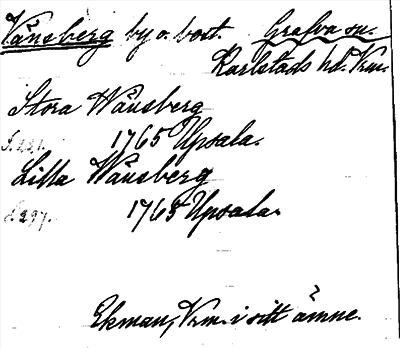 Vänsberg by o. bost. Grafva sn.
Karlstads hd. Vrm.
Stora Wänsberg
S. 221. 1765 Upsala.
Lilla Wänsberg
S. 297. 1765 Upsala.
Ekman, Vrm. i sitt ämne.